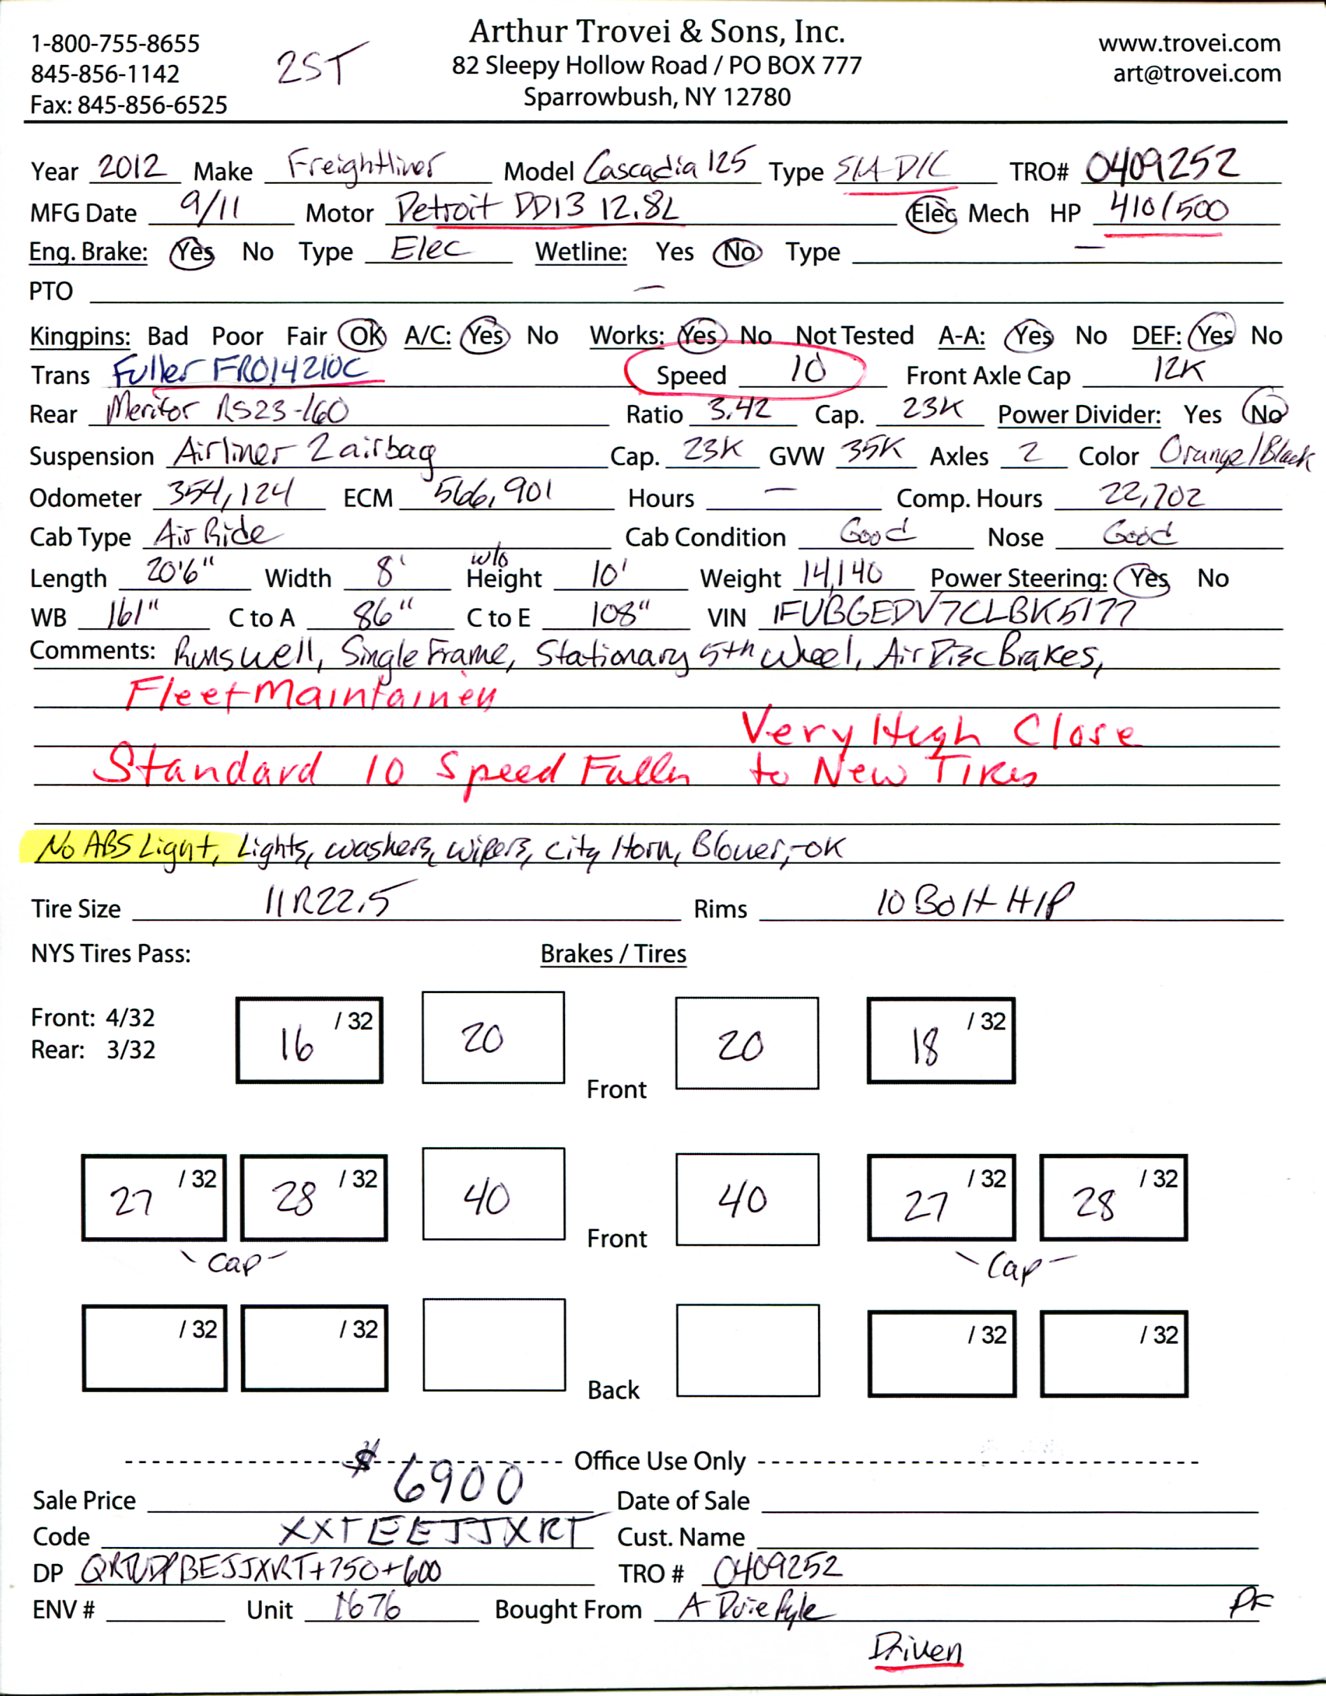 1-800-755-8655
845-856-1142
Fax: 845-856-6525
2ST
Arthur Trovei & Sons, Inc.
82 Sleepy Hollow Road / PO BOX 777
Sparrowbush, NY 12780
www.trovei.com
art@trovei.com
Year 2012 Make Freightliner Model Cascadia 125 Type S/A D/C TRO# 0409252
MFG Date 9/11 Motor Detroit DD13 12.8L Elec Mech HP 410/500
Eng. Brake: Yes No Type Elec Wetline: Yes No Type —
PTO —
Kingpins: Bad Poor Fair OK A/C: Yes No Works: Yes No Not Tested A-A: Yes No DEF: Yes No
Trans Fuller FRO14210C Speed 10 Front Axle Cap 12K
Rear Meritor RS23-160 Ratio 3.42 Cap. 23K Power Divider: Yes No
Suspension Airliner 2 airbag Cap. 23K GVW 35K Axles 2 Color Orange/Black
Odometer 354,124 ECM 566,901 Hours — Comp. Hours 22,702
Cab Type Air Ride Cab Condition Good Nose Good
Length 20'6" Width 8' w/o Height 10' Weight 14,140 Power Steering: Yes No
WB 161" C to A 86" C to E 108" VIN 1FUBGEDV7CLBK5177
Comments: Runs well, Single Frame, Stationary 5th Wheel, Air Disc Brakes,
Fleet Maintained
Very High Close
Standard 10 Speed Fuller to New Tires
No ABS Light, Lights, washers, wipers, city Horn, Blower,-OK
Tire Size 11R22.5 Rims 10 Bolt H/P
NYS Tires Pass: Brakes / Tires
Front: 4/32
Rear: 3/32
16 /32 20 20 18 /32
Front
27 /32 28 /32 40 40 27 /32 28 /32
Front
-Cap- -Cap-
/32 /32 /32 /32
Back
Office Use Only
Sale Price $6900 Date of Sale
Code XXTEEJJXRT Cust. Name
DP TRO # 0409252
ENV # Unit 1676 Bought From A Duie Pyle PF
Driven